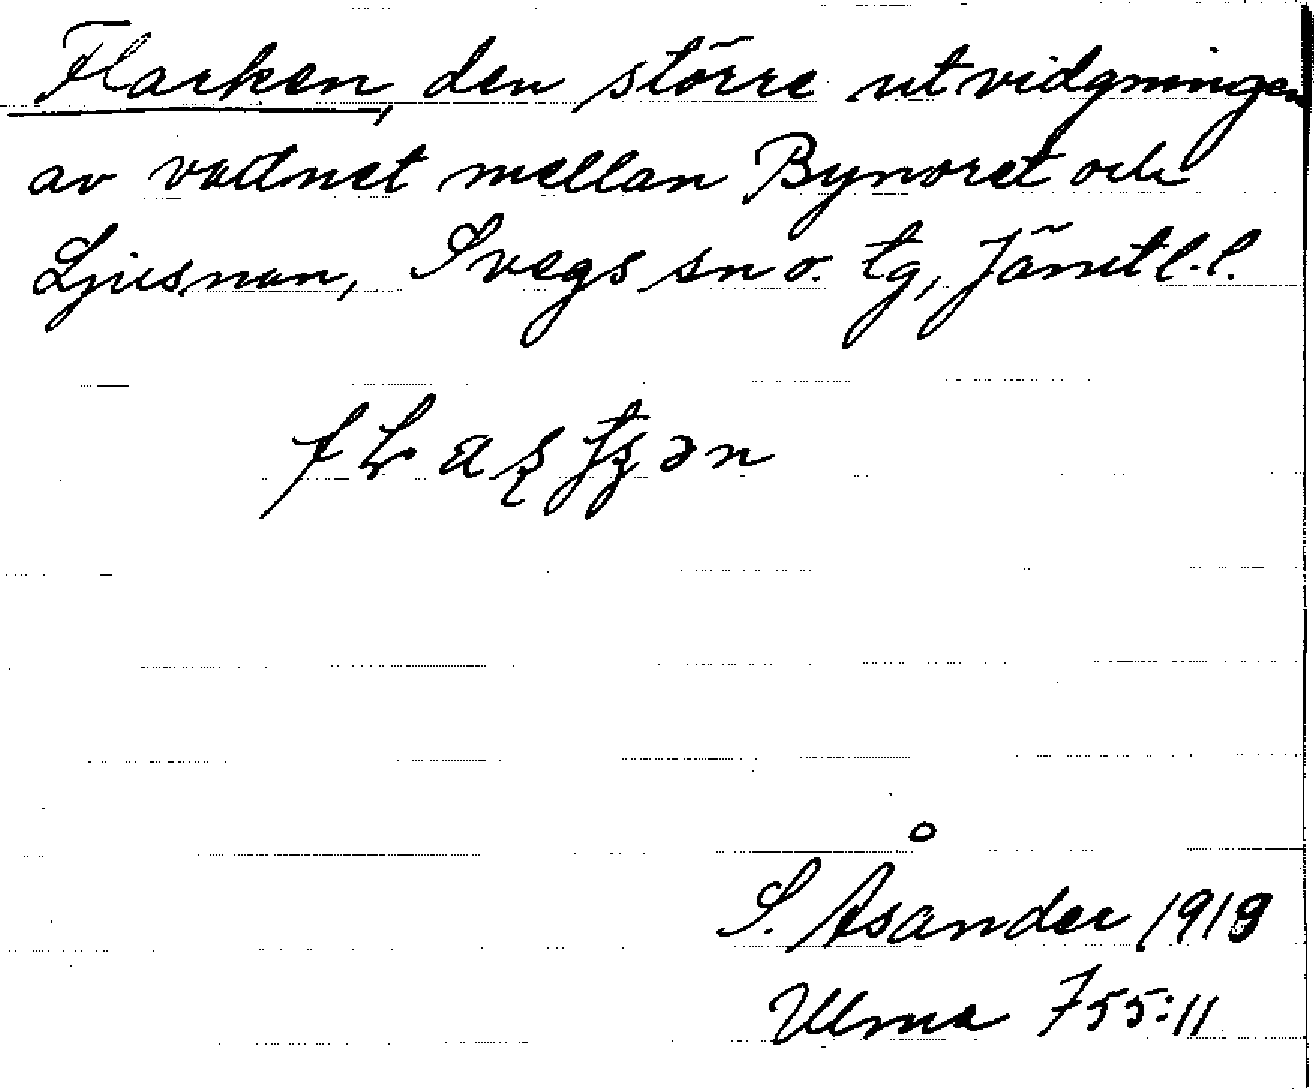 Flarken, den större utvidgningen
av vattnet mellan Bynoret och
Ljusnan, Svegs sn o. tg, Jämtl. l.
S. Åsander 1918
Ulma 755:11